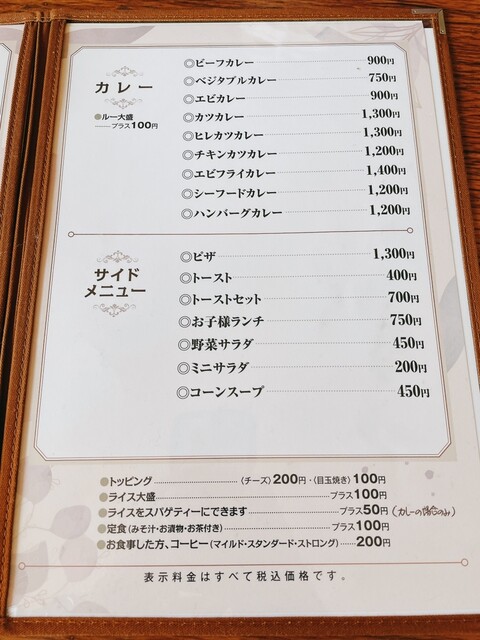 カレー
●ルー大盛
――プラス100円
◎ビーフカレー 900円
◎ベジタブルカレー 750円
◎エビカレー 900円
◎カツカレー 1,300円
◎ヒレカツカレー 1,300円
◎チキンカツカレー 1,200円
◎エビフライカレー 1,400円
◎シーフードカレー 1,200円
◎ハンバーグカレー 1,200円
サイド
メニュー
◎ピザ 1,300円
◎トースト 400円
◎トーストセット 700円
◎お子様ランチ 750円
◎野菜サラダ 450円
◎ミニサラダ 200円
◎コーンスープ 450円
●トッピング (チーズ)200円・(目玉焼き)100円
●ライス大盛 プラス100円
●ライスをスパゲティーにできます プラス50円 (カレーの場合のみ)
●定食(みそ汁・お漬物・お茶付き) プラス100円
●お食事した方、コーヒー(マイルド・スタンダード・ストロング) 200円
表示料金はすべて税込価格です。